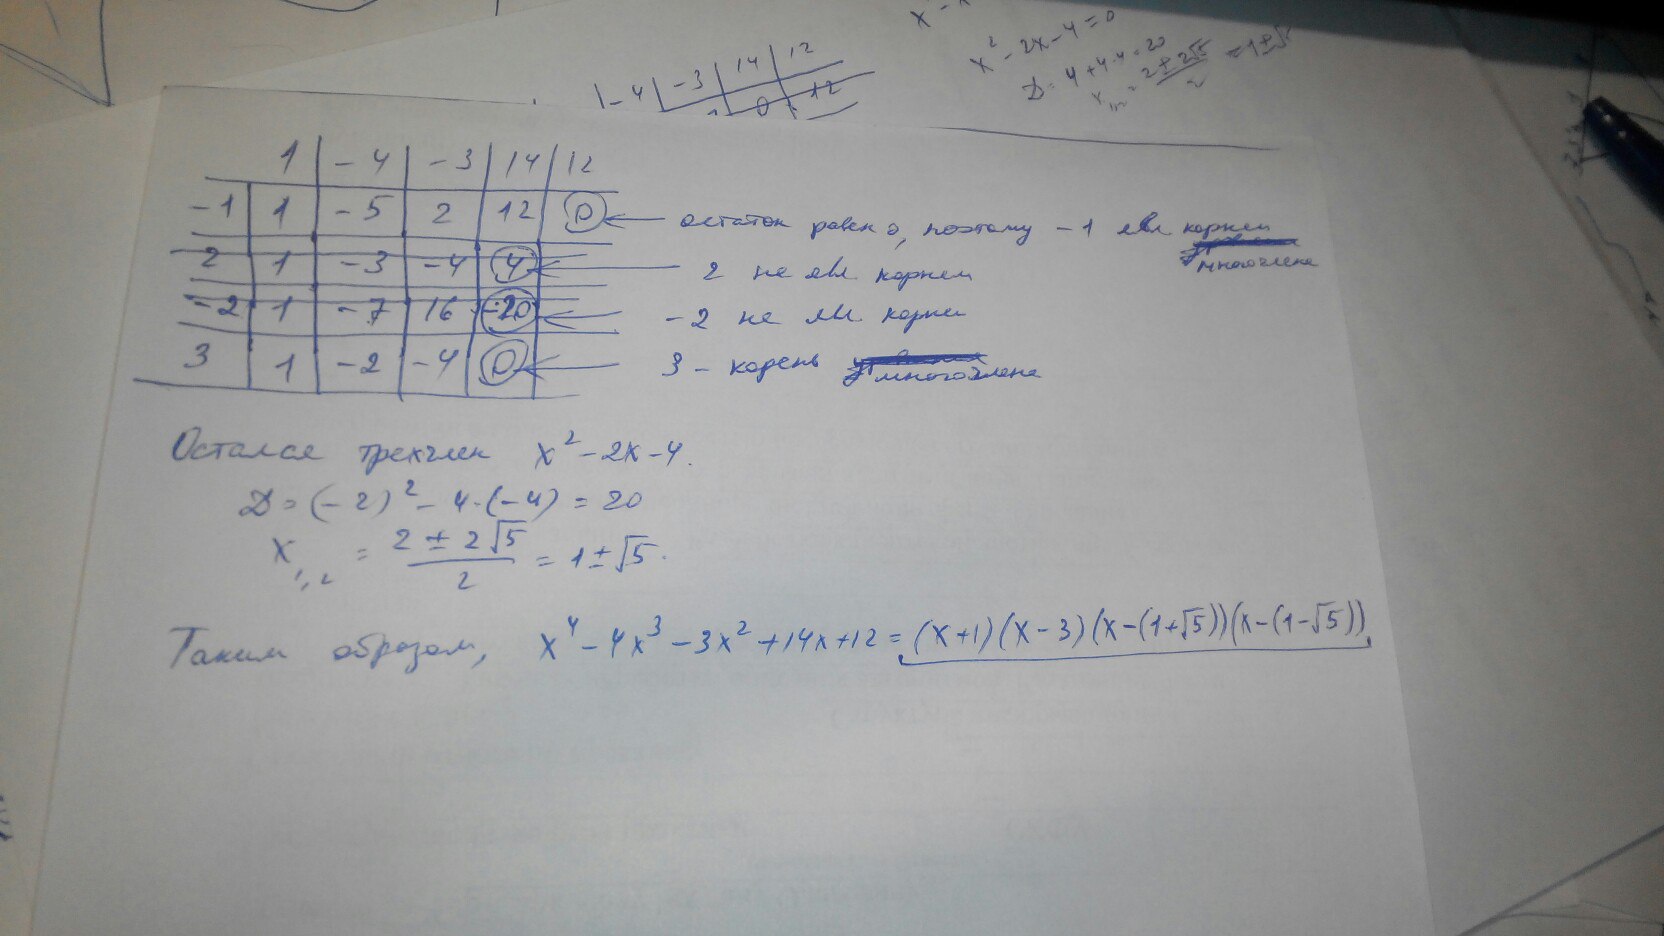 x² - 2x - 4 = 0
D = 4 + 4·4 = 20
2 ± 2√5
2
-4 | -3 | 14 | 12
0 12
1 | -4 | -3 | 14 | 12
-1 | 1 | -5 | 2 | 12 | 0 ← остаток равен 0, поэтому -1 явл корнем
многочлена
2 | 1 | -3 | -4 | 4 ← 2 не явл корнем
-2 | 1 | -7 | 16 | -20 ← -2 не явл корнем
3 | 1 | -2 | -4 | 0 ← 3 - корень многочлена
Остался трехчлен x² - 2x - 4.
D = (-2)² - 4·(-4) = 20
x₁,₂ = (2 ± 2√5)/2 = 1 ± √5.
Таким образом, x⁴ - 4x³ - 3x² + 14x + 12 = (x+1)(x-3)(x-(1+√5))(x-(1-√5))